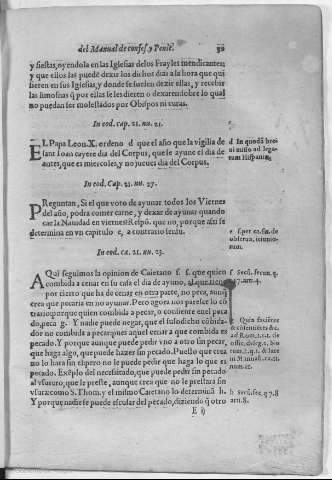 del Manual de confes. y Penit. 36
y fiestas, oyendola en las Iglesias de los Frayles mendicantes:
y que ellos las puedē dezir los dichos dias a la hora que qui
sieren en sus Iglesias, y donde se suelen dezir ellas, y recebir
las limosnas q̄ por ellas se les dieren o dexaren sobre lo qual
no puedan ser molestados por Obispos ni curas.
In eod. cap. 21. nu. 21.
EL Papa Leon. X. ordeno d que el año que la vigilia de
sant Ioan cayere dia del Corpus, que se ayune el dia de
antes, que es miercoles, y no jueues dia del Corpus.
d In quodā brei
ni misso ad lega-
tum Hispaniæ.
In eod. Cap. 21. nu. 27.
PReguntan, Si el que voto de ayunar todos los Viernes
del año, podra comer carne, y dexar de ayunar quando
cae la Nauidad en viernes? Respō. que no, porque assi se
determina en vn capitulo e, a contrario sensu.
e
In eod. ca. 21. nu. 23.
AQui seguimos la opinion de Caietano f. que quien
combida a cenar en su casa el dia de ayuno, al que
por cierto que ha de cenar en otra parte, no peca, aunq̄
crea que pecaria en no ayunar. Pero agora nos parece lo cō
trario porque quien combida a pecar, o consiente en el peca
do, peca g. Y nadie puede negar, que el susodicho cōbida-
dor no combida a pecar: pues aquel cenar a que combida es
pecado. Y porque aunque puede pedir vno a otro sin pecar,
que haga algo, que puede hazer sin pecado. Pueslo que crea
no lo hara sin el: pero no le puede pedir que haga lo que es
pecado. Exēplo del necessitado, que puede pedir sin pecado
al vsurero, que le preste, aunque crea que no le prestara sin
vsura: como S. Thom. y el mismo Caietano lo determinā h.
Y porque nadie se puede escusar del pecado, diziendo q̄ otro
f Secū. secun. q.
147. ar. 4.
g Quia faciēre
& consentiētes &c.
ad Rom.
h Secū. sec. q. 78
art. 8.
E ij